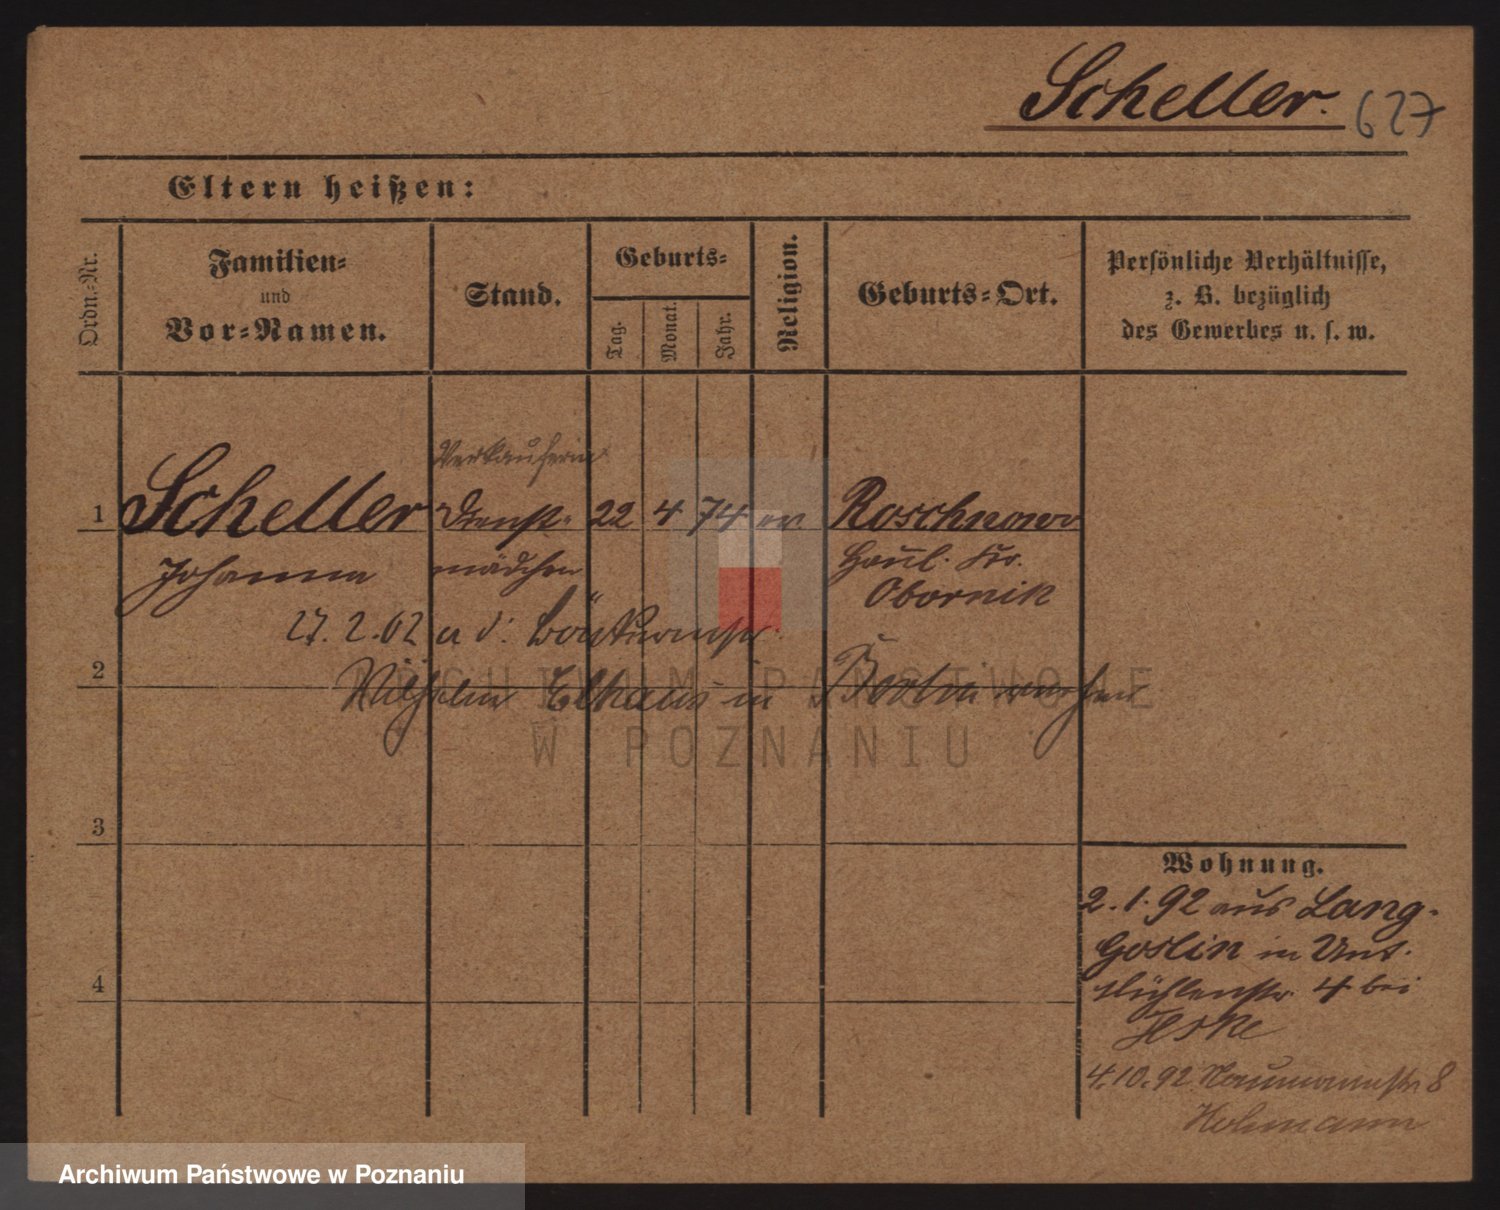 Scheller. 627
Eltern heißen:
Ordn.-Nr.
Familien-
und
Vor-Namen.
Stand.
Geburts-
Tag.
Monat.
Jahr.
Religion.
Geburts-Ort.
Persönliche Verhältnisse,
z. B. bezüglich
des Gewerbes u. s. w.
Verkäuferin
1 Scheller Dienst- 22 4 74 ev Roschnowo
Johanna mädchen Haul. Kr.
Obornik
27. 2. 02 a d.
2 Wilhelm Elkaus in Berlin
ARCHIWUM PAŃSTWOWE
W POZNANIU
3
Wohnung.
2.1.92 aus Lang-
Goslin in Unt.
4 Mühlenstr. 4 bei
Jeske
4.10.92 Naumannstr 8
Hohmann
Archiwum Państwowe w Poznaniu